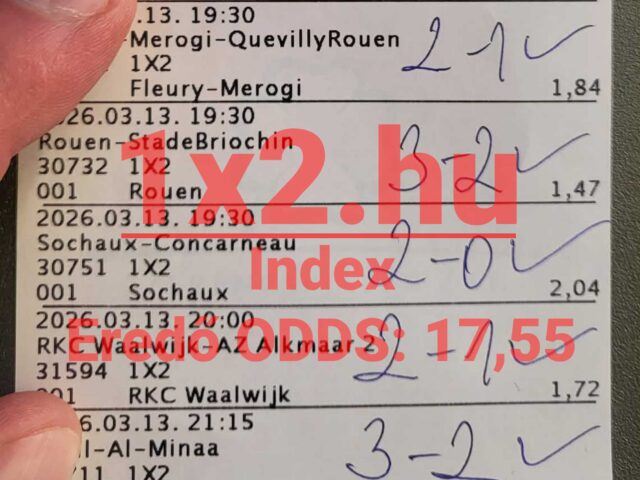 .13. 19:30
-Merogi-QuevillyRouen
2-1 ✓
1X2
Fleury-Merogi 1,84
26.03.13. 19:30
Rouen-StadeBriochin
3-2 ✓
30732 1X2
001 Rouen 1,47
1x2.hu
2026.03.13. 19:30
Sochaux-Concarneau
2-0 ✓
30751 1X2
Index
001 Sochaux 2,04
2026.03.13. 20:00
RKC Waalwijk-AZ Alkmaar 2
Eredő ODDS: 17,55
2-1 ✓
31594 1X2
001 RKC Waalwijk 1,72
6.03.13. 21:15
l-Al-Minaa
3-2 ✓
711 1X2